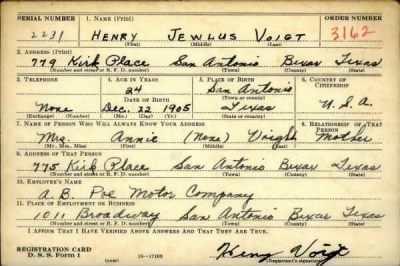 SERIAL NUMBER 1. NAME (Print) ORDER NUMBER
2231 HENRY JENILUS VOIGT 3162
(First) (Middle) (Last)
2. ADDRESS (Print)
779 Kirk Place San Antonio Bexar Texas
(Number and street or R. F. D. number) (Town) (County) (State)
3. TELEPHONE 4. AGE IN YEARS 5. PLACE OF BIRTH 6. COUNTRY OF CITIZENSHIP
34 San Antonio
DATE OF BIRTH (Town or county)
None Dec. 22 1905 Texas U.S.A.
(Exchange) (Number) (Mo.) (Day) (Yr.) (State or country)
7. NAME OF PERSON WHO WILL ALWAYS KNOW YOUR ADDRESS 8. RELATIONSHIP OF THAT PERSON
Mrs. Annie (None) Voight Mother
(Mr., Mrs., Miss) (First) (Middle) (Last)
9. ADDRESS OF THAT PERSON
775 Kirk Place San Antonio Bexar Texas
(Number and street or R. F. D. number) (Town) (County) (State)
10. EMPLOYER'S NAME
A. B. Poe Motor Company
11. PLACE OF EMPLOYMENT OR BUSINESS
1011 Broadway San Antonio Bexar Texas
(Number and street or R. F. D. number) (Town) (County) (State)
I AFFIRM THAT I HAVE VERIFIED ABOVE ANSWERS AND THAT THEY ARE TRUE.
REGISTRATION CARD
D. S. S. Form 1 (over) Henry Voigt
(Registrant's signature)